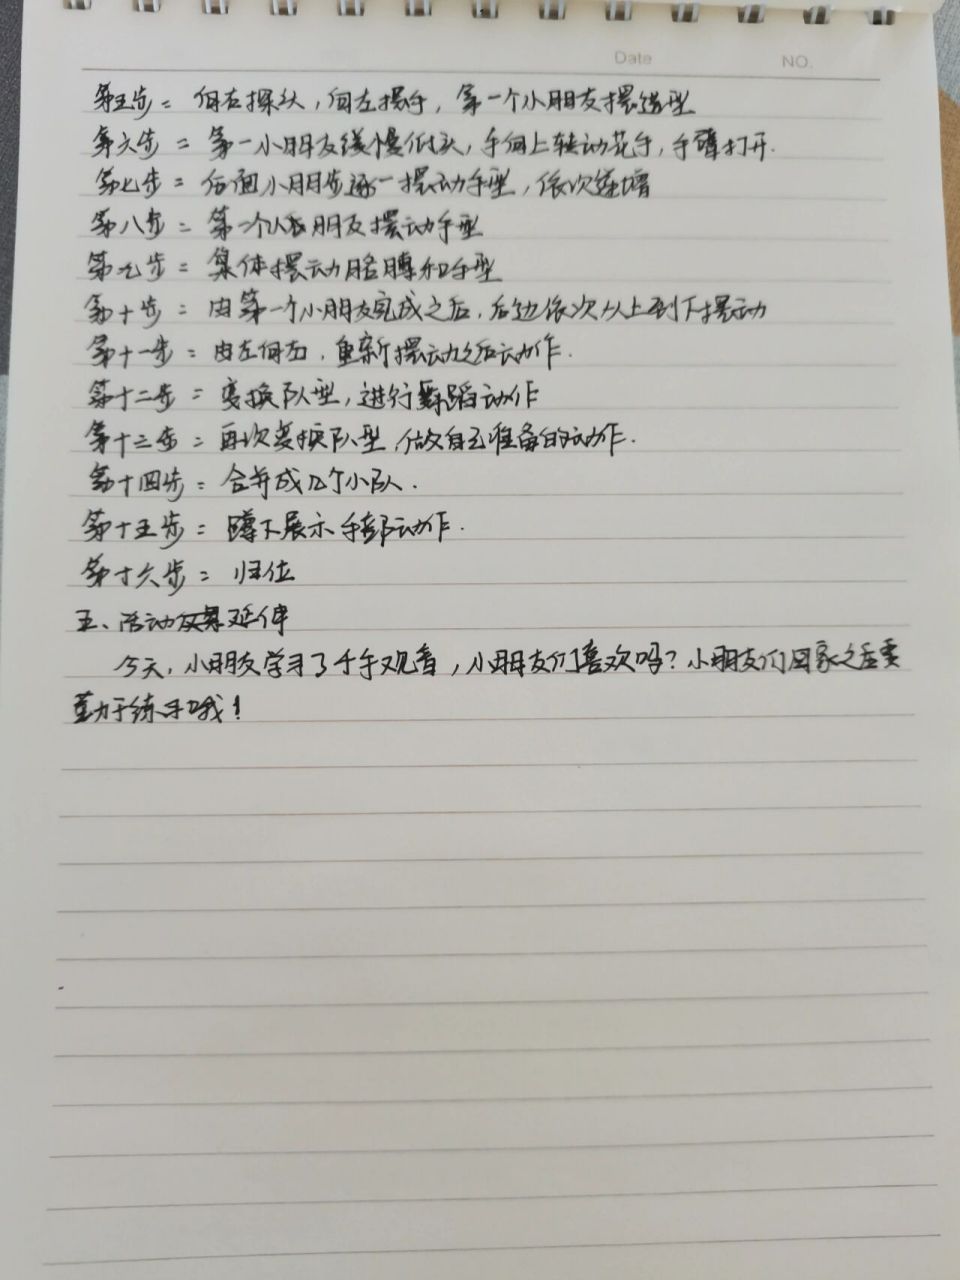 Date NO.
第五步: 向右探头,向左摆手,第一个小朋友摆造型
第六步: 第一小朋友缓慢低头,手向上转动花手,手臂打开.
第七步: 后面小朋步逐一摆动手型,依次递增
第八步: 第一个朋友摆动手型
第九步: 集体摆动胳膊和手型
第十步: 由第一个小朋友完成之后,后边依次从上到下摆动
第十一步: 由左向右,重新摆动之后动作.
第十二步: 变换队型,进行舞蹈动作
第十三步: 再次变换队型,做自己准备的动作.
第十四步: 合并成几个小队.
第十五步: 蹲下展示手部动作.
第十六步: 归位
五、活动延伸
今天,小朋友学习了千手观音,小朋友们喜欢吗?小朋友们回家之后要
勤于练习哦!